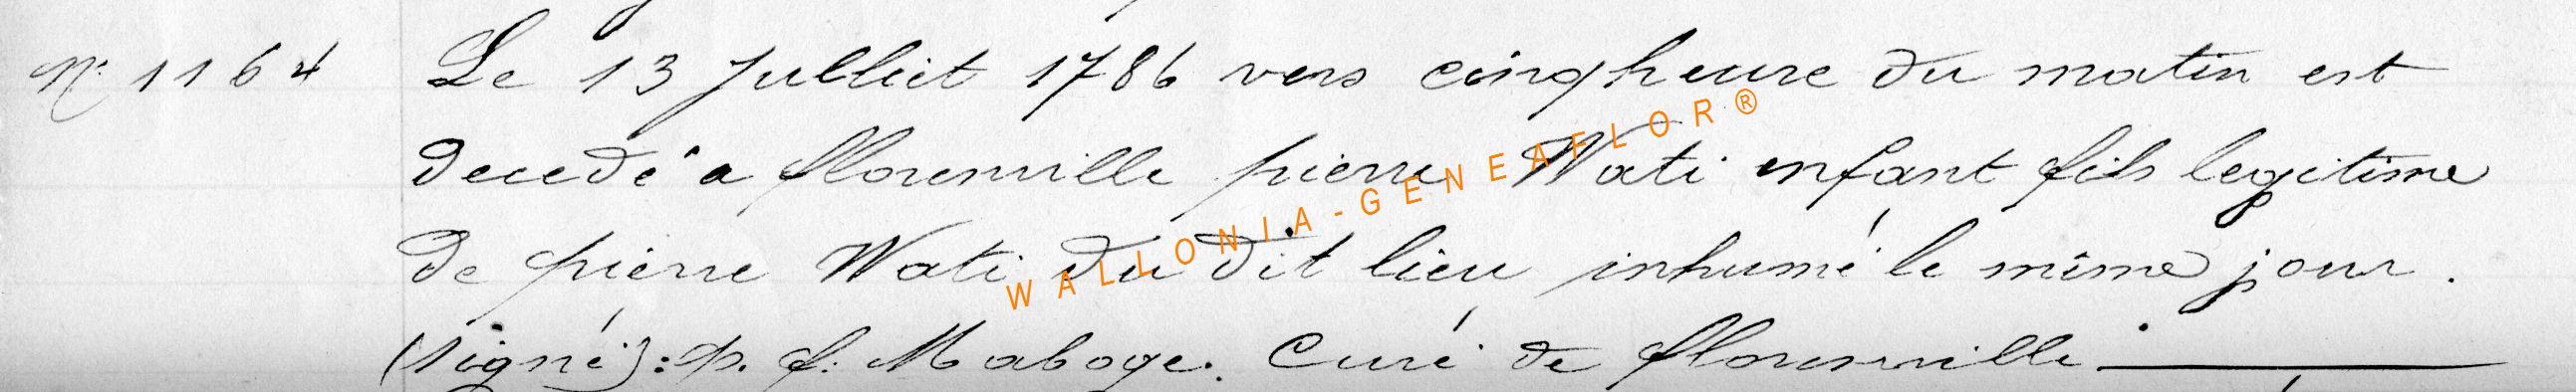 N° 1164 Le 13 Julliet 1786 vers cinq heure du matin est
decedé a florenville pierre Wati enfant fils legitime
de pierre Wati du dit lieu inhumé le même jour.
(signé): p. f. Maboge. Curé de florenville
WALLONIA-GENEAFLOR®